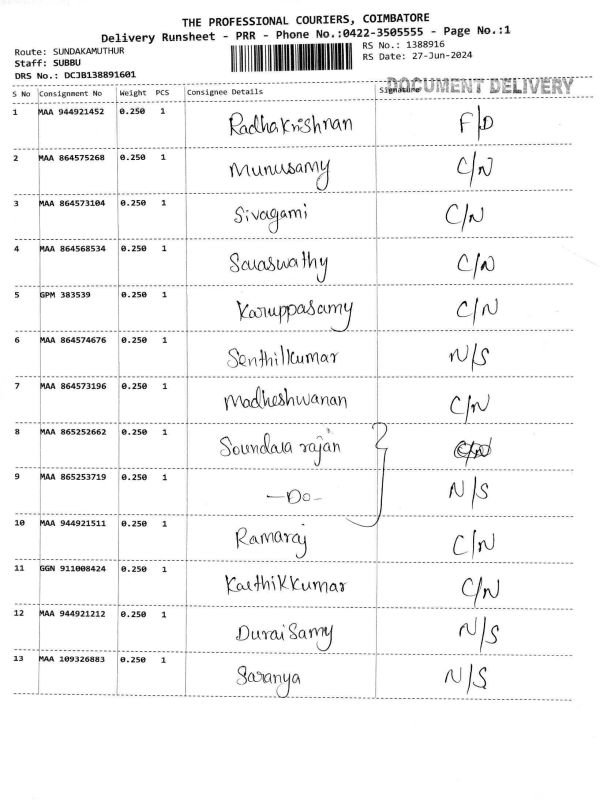 THE PROFESSIONAL COURIERS, COIMBATORE
Delivery Runsheet - PRR - Phone No.:0422-3505555 - Page No.:1
Route: SUNDAKAMUTHUR RS No.: 1388916
Staff: SUBBU RS Date: 27-Jun-2024
DRS No.: DCJB138891601
DOCUMENT DELIVERY
S No Consignment No Weight PCS Consignee Details Signature
1 MAA 944921452 0.250 1 Radhakrishnan F/D
2 MAA 864575268 0.250 1 Munusamy C/N
3 MAA 864573104 0.250 1 Sivagami C/N
4 MAA 864568534 0.250 1 Saraswathy C/N
5 GPM 383539 0.250 1 Karuppasamy C/N
6 MAA 864574676 0.250 1 Senthilkumar N/S
7 MAA 864573196 0.250 1 Madheshwanan C/N
8 MAA 865252662 0.250 1 Soundara rajan C/N
9 MAA 865253719 0.250 1 -Do- N/S
10 MAA 944921511 0.250 1 Ramaraj C/N
11 GGN 911008424 0.250 1 Karthikkumar C/N
12 MAA 944921212 0.250 1 Duraisamy N/S
13 MAA 109326883 0.250 1 Saranya N/S